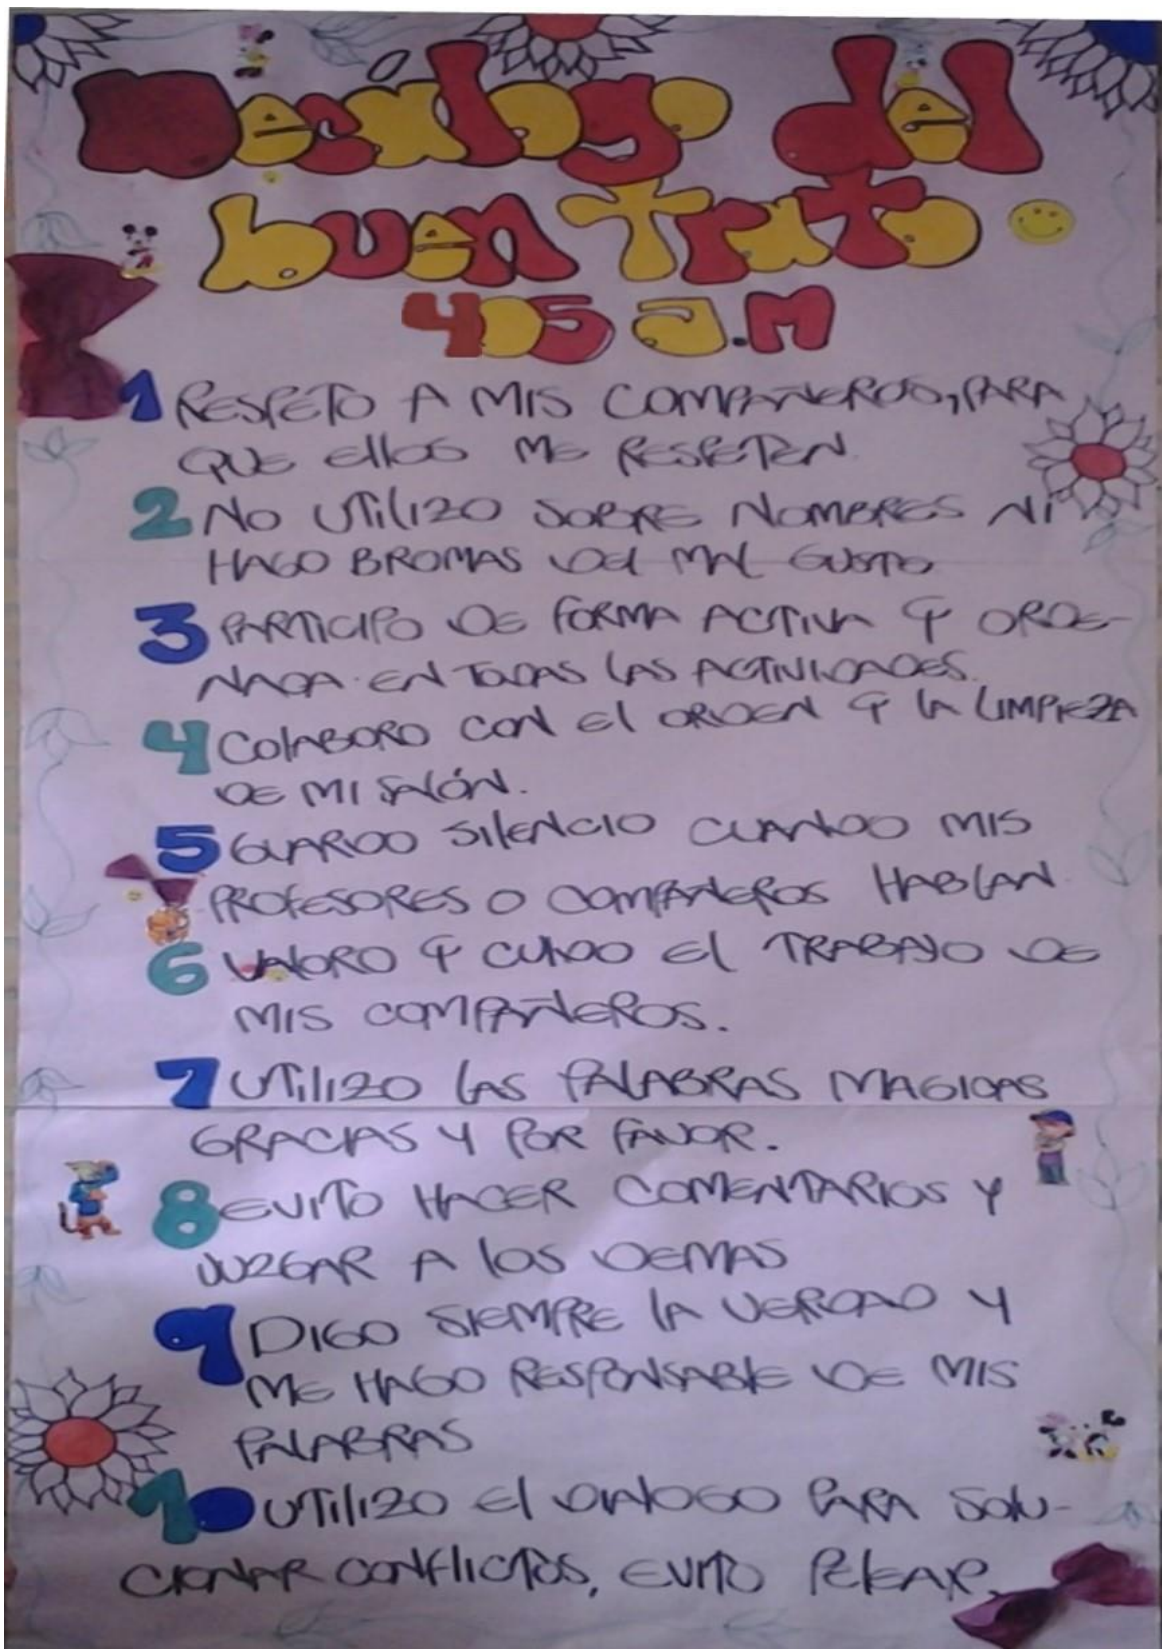 Decálogo del
buen trato
405 a.m
1 RESPETO A MIS COMPAÑEROS, PARA
QUE Ellos ME RESPETEN.
2 NO UTilizo SOBRE NOMBRES Ni
HAGO BROMAS DEl MAL GUSTO
3 PARTICIPO DE FORMA ACTIVA Y ORDE-
NADA EN TODAS LAS ACTIVIDADES.
4 COlABORO CON El ORDEN Y lA LIMPIEZA
DE MI SAlÓN.
5 GUARDO SilENCIO CUANDO MIS
PROFESORES O COMPAÑEROS HABlAN.
6 VAlORO Y CUIDO El TRABAJO DE
MIS COMPAÑEROS.
7 UTilizo lAS PAlABRAS MAGICAS
GRACIAS Y POR FAVOR.
8 EVITO HACER COMENTARIOS Y
JUZGAR A lOS DEMAS
9 DIGO SIEMPRE lA VERDAD Y
ME HAGO RESPONSABlE DE MIS
PAlABRAS
10 UTilizo El DIAlOGO PARA SOlU-
CIONAR CONFlICTOS, EVITO PElEAR.